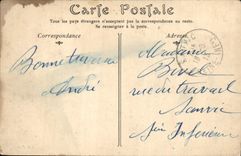 Carte Postale
Tous les pays étrangers n'acceptent pas la correspondance au recto.
Se renseigner à la poste.
Correspondance
Adresse
Bonne
André
Madame
rue du travail
Sanvic
Inférieure